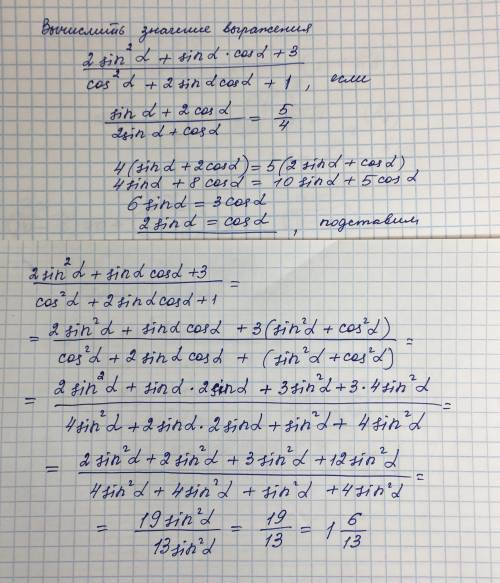 Вычислить значение выражения
(2sin²α + sinα · cosα + 3) / (cos²α + 2sinαcosα + 1), если
(sinα + 2cosα) / (2sinα + cosα) = 5/4
4(sinα + 2cosα) = 5(2sinα + cosα)
4sinα + 8cosα = 10sinα + 5cosα
6sinα = 3cosα
2sinα = cosα, подставим
(2sin²α + sinαcosα + 3) / (cos²α + 2sinαcosα + 1) =
= (2sin²α + sinαcosα + 3(sin²α + cos²α)) / (cos²α + 2sinαcosα + (sin²α + cos²α)) =
= (2sin²α + sinα · 2sinα + 3sin²α + 3·4sin²α) / (4sin²α + 2sinα · 2sinα + sin²α + 4sin²α) =
= (2sin²α + 2sin²α + 3sin²α + 12sin²α) / (4sin²α + 4sin²α + sin²α + 4sin²α) =
= 19sin²α / 13sin²α = 19/13 = 1 6/13